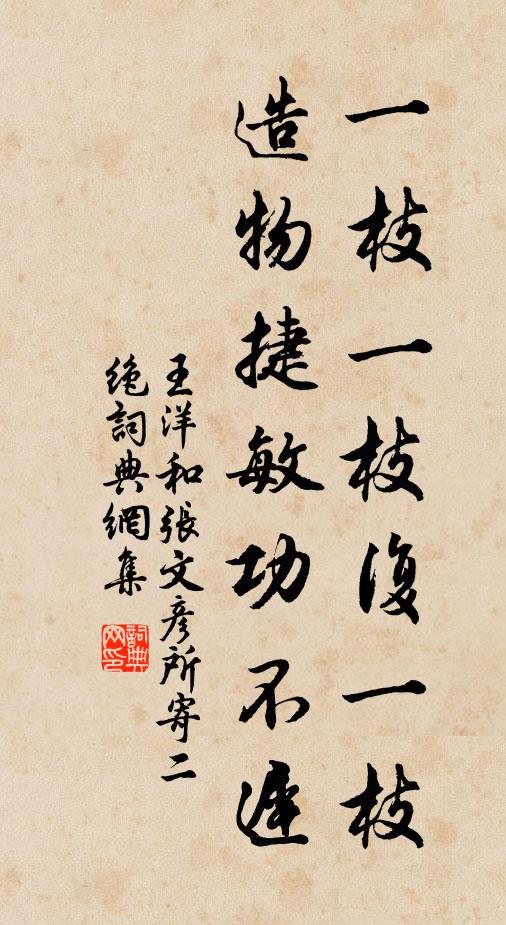 一枝一枝復一枝
造物捷敏功不遲
王洋和張文彥所寄二
絕詞典網集
詞典網印